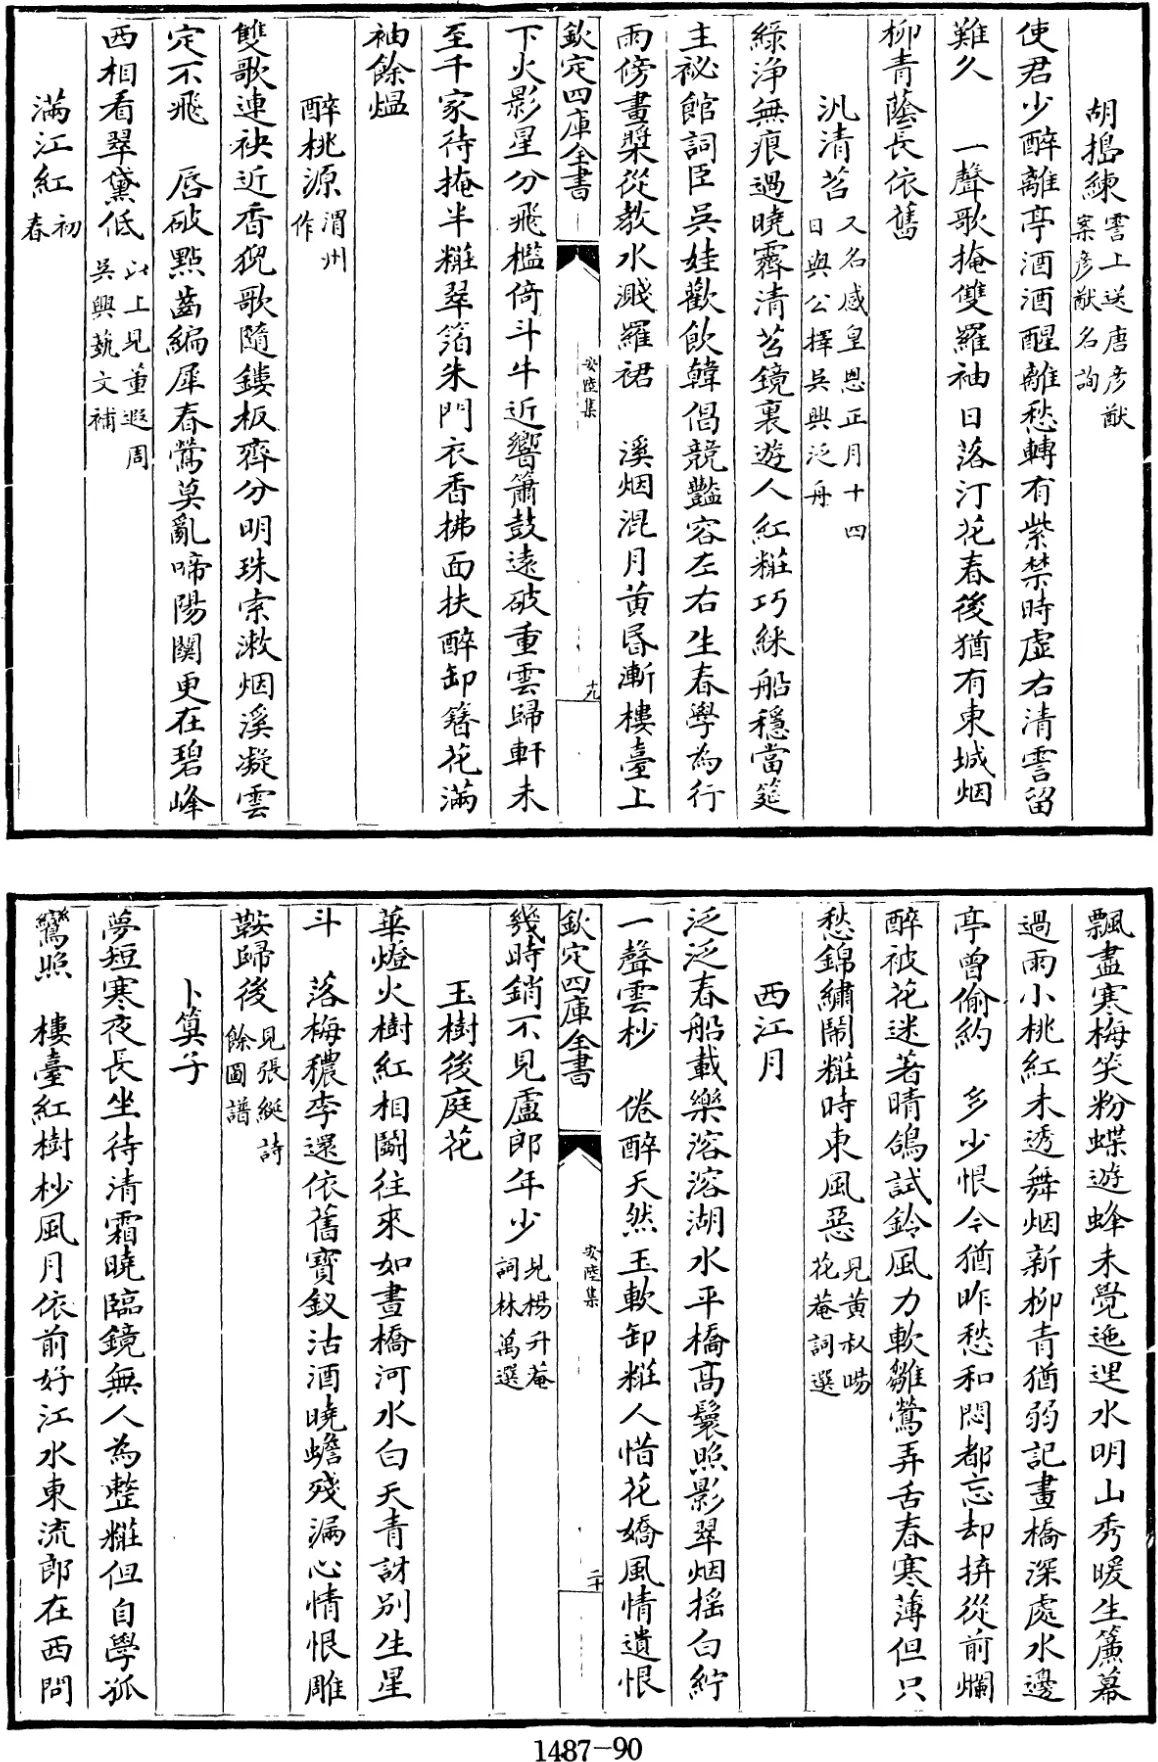 胡搗練霅上送唐彦猷案彦猷名詢
使君少醉離亭酒酒醒離愁轉有紫禁時虚右清霅留
難久　一聲歌掩雙羅袖日落汀花春後猶有東城烟
柳青蔭長依舊
汎清苕又名感皇恩正月十四日與公擇吳興泛舟
綠净無痕過曉霽清苕鏡裏遊人紅糚巧綵船穩當筵
主祕館詞臣吳娃歡飲韓倡競豔容左右生春學為行
雨傍畫槳從教水濺羅裙　溪烟混月黃昏漸樓臺上
欽定四庫全書
安陸集
十九
下火影星分飛檻倚斗牛近響簫鼓遠破重雲歸軒未
至千家待掩半糚翠箔朱門衣香拂面扶醉卸簪花滿
袖餘煴
醉桃源渭州作
雙歌連袂近香猊歌隨鏤板齊分明珠索漱烟溪凝雲
定不飛　唇破點齒編犀春鶯莫亂啼陽關更在碧峰
西相看翠黛低以上見董遐周吳興藝文補
滿江紅初春
飄盡寒梅笑粉蝶遊蜂未覺迤逦水明山秀暖生簾幕
過雨小桃紅未透舞烟新柳青猶弱記畫橋深處水邊
亭曾偷約　多少恨今猶昨愁和悶都忘却拚從前爛
醉被花迷著晴鴿試鈴風力軟雛鶯弄舌春寒薄但只
愁錦繡鬧糚時東風惡見黃叔暘花菴詞選
西江月
泛泛春船載樂溶溶湖水平橋高鬟照影翠烟揺白紵
一聲雲杪　倦醉天然玉軟卸糚人惜花嬌風情遺恨
欽定四庫全書
安陸集
二十
幾時銷不見盧郎年少見楊升菴詞林萬選
玉樹後庭花
華燈火樹紅相鬭往來如晝橋河水白天青訝别生星
斗　落梅穠李還依舊寶釵沽酒曉蟾殘漏心情恨雕
鞍歸後見張綖詩餘圖譜
卜算子
夢短寒夜長坐待清霜曉臨鏡無人為整糚但自學孤
鸞照　樓臺紅樹杪風月依前好江水東流郎在西問
1487-90